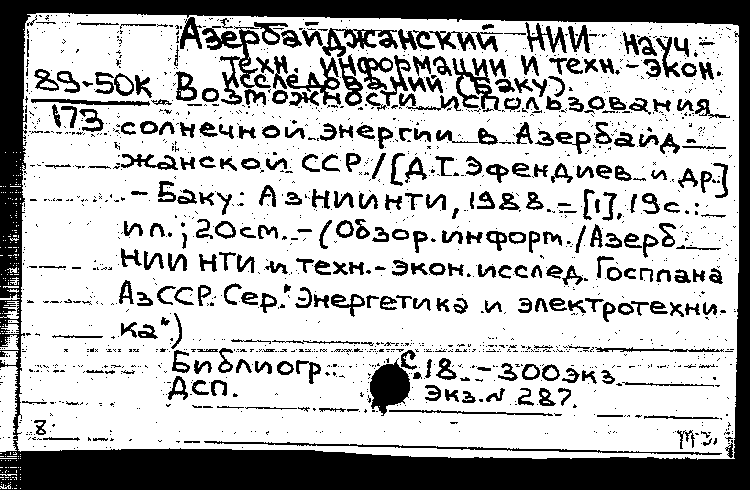 Азербайджанский НИИ науч.-
техн. информации и техн.-экон.
исследований (Баку).
89-50К Возможности использования
173 солнечной энергии в Азербайд-
жанской ССР / [Д.Т. Эфендиев и др.]
- Баку: АзНИИНТИ, 1988. - [1], 19 с.:
ил.; 20 см. - (Обзор. информ. / Азерб.
НИИ НТИ и техн.-экон. исслед. Госплана
АзССР. Сер. "Энергетика и электротехни-
ка")
Библиогр.: с. 18. - 300 экз.
ДСП. Экз. N 287.
8